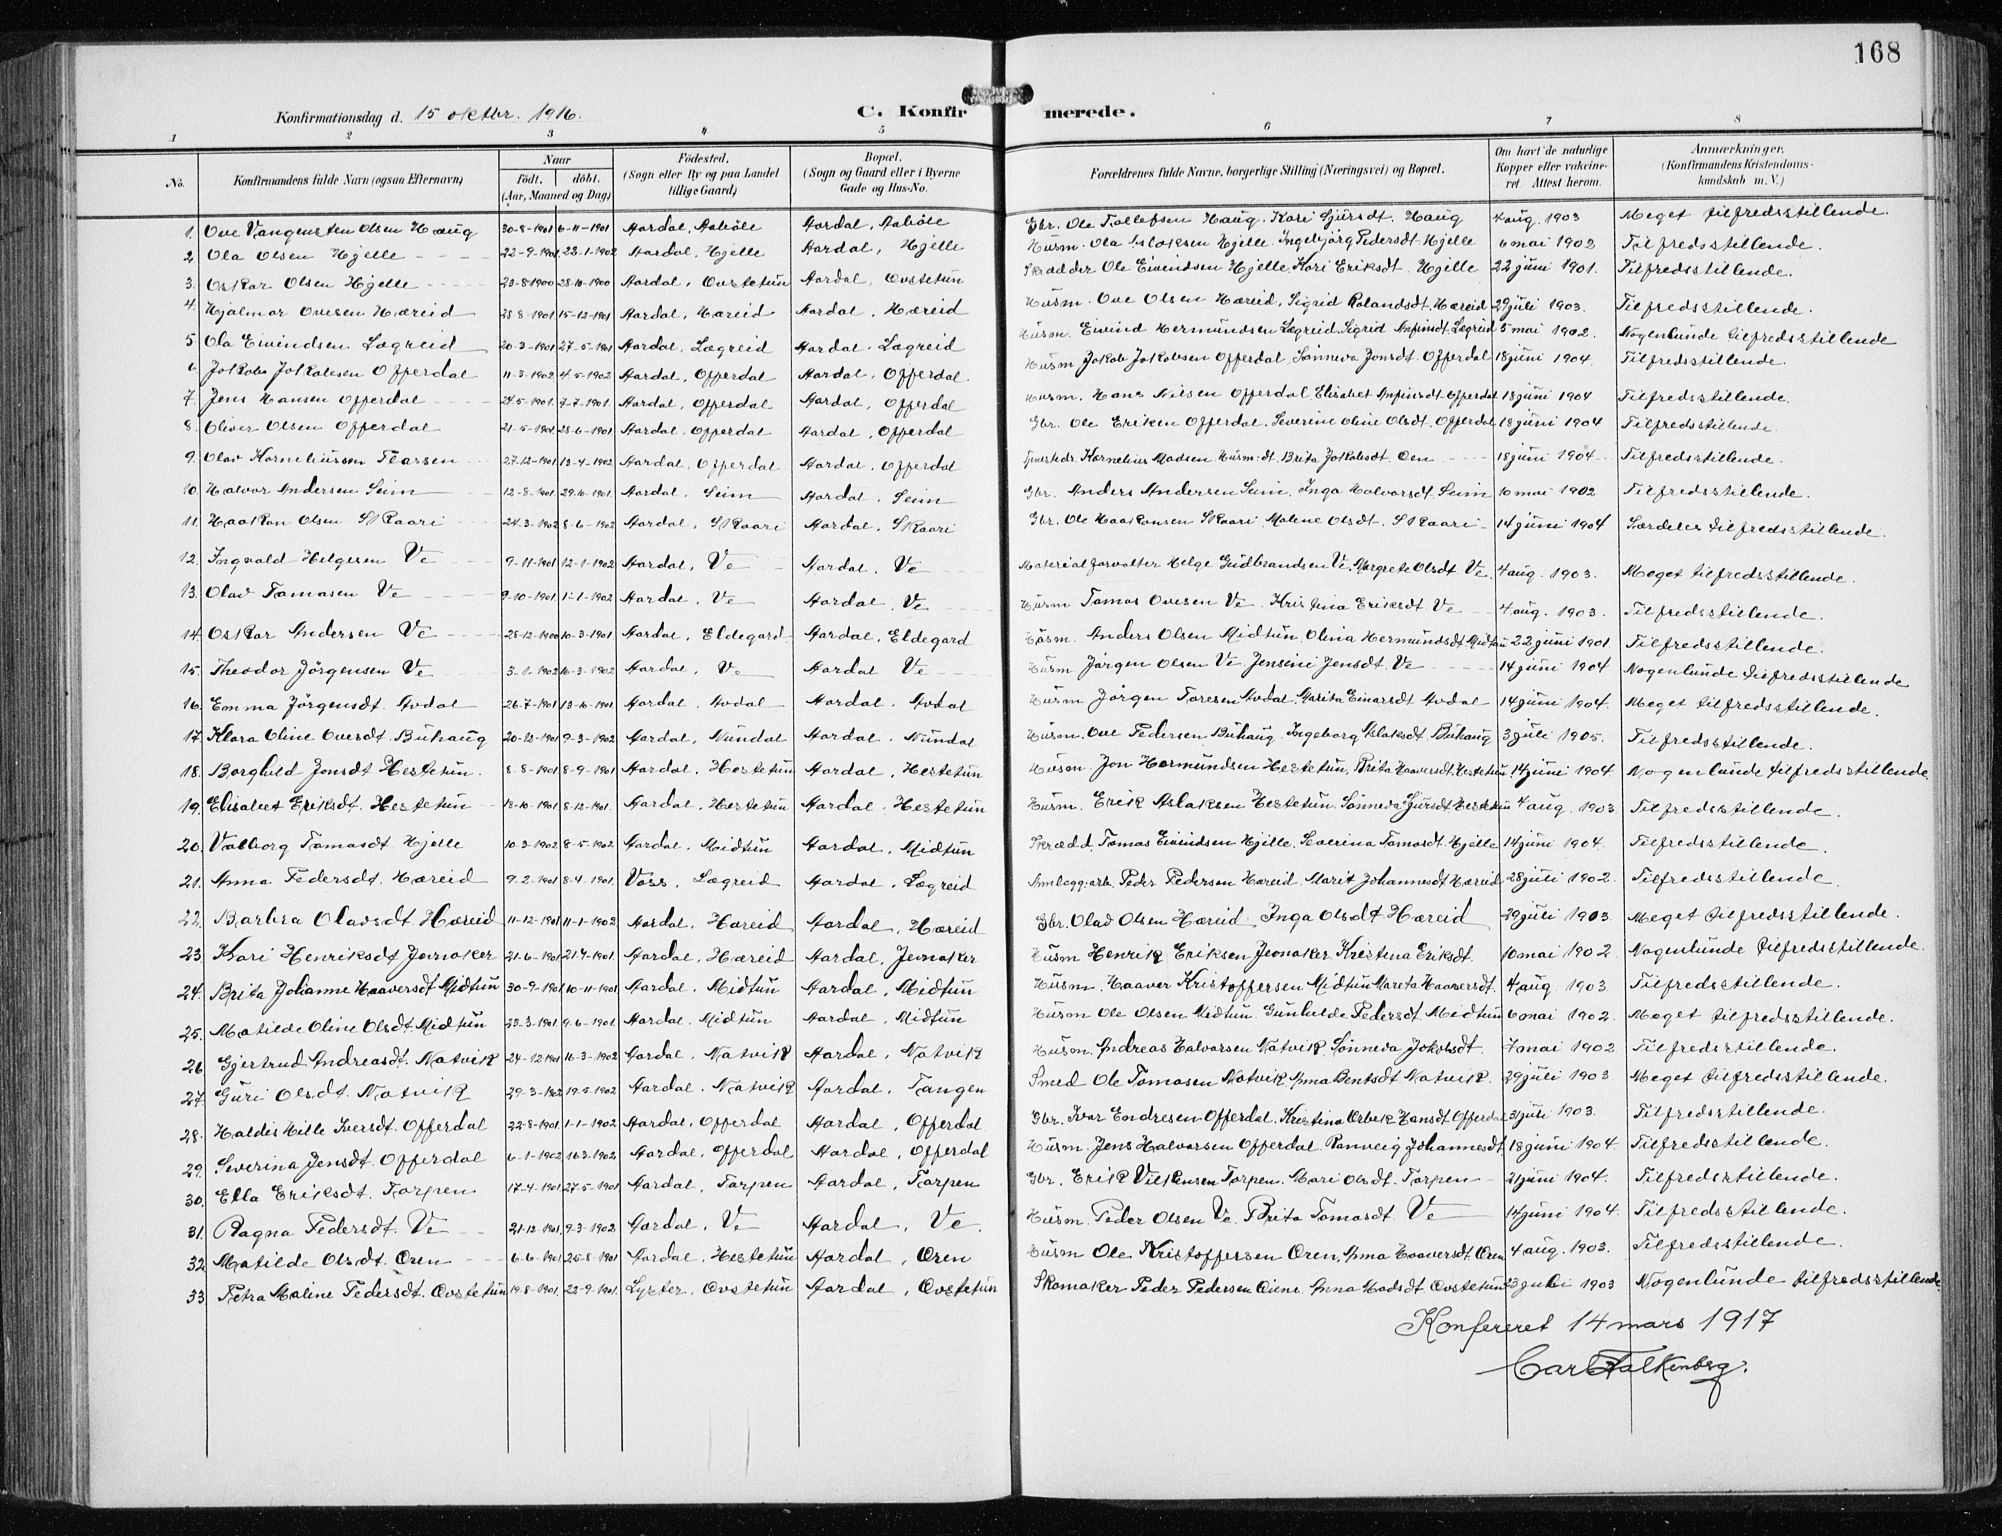 168
Konfirmationsdag d. 15 oktbr. 1916.
C. Konfirmerede.
1 2 3 4 5 6 7 8
No. Konfirmandens fulde Navn (ogsaa Efternavn) Naar født. døbt. (Aar, Maaned og Dag) Fødested. (Sogn eller By og paa Landet tillige Gaard) Bopæl. (Sogn og Gaard eller i Byerne Gade og Hus-No. Forældrenes fulde Navne, borgerlige Stilling (Næringsvei) og Bopæl. Om havt de naturlige Kopper eller vakcineret. Attest herom. Anmærkninger. (Konfirmandens Kristendomskundskab m. V.)
1. Ove Vangensten Olsen Haug 30-8-1901 6-11-1901 Aardal, Aabøle Aardal, Aabøle Gbr. Ole Tollefsen Haug. Kari Sjursdt. Haug 4 aug. 1903 Meget tilfredsstillende.
2. Ola Olsen Hjelle 22-9-1901 23-1-1902 Aardal, Hjelle Aardal, Hjelle Husm. Ola Aslaksen Hjelle. Ingebjörg Pedersdt. Hjelle 6 mai 1902 Tilfredsstillende.
3. Oskar Olsen Hjelle 23-8-1900 28-10-1900 Aardal, Ovstetun Aardal, Ovstetun Skrædder Ole Eivindsen Hjelle. Kari Eriksdt. Hjelle 22 juni 1901. Tilfredsstillende.
4. Hjalmar Ovesen Hæreid 28-8-1901 15-12-1901 Aardal, Hæreid Aardal, Hæreid Husm. Ove Olsen Hæreid, Sigrid Rolandsdt. Hæreid 29 juli 1903. Tilfredsstillende.
5 Ola Eivindsen Lægreid 20-3-1901 27-5-1901 Aardal, Lægreid Aardal. Lægreid Husm. Eivind Hermundsen Lægreid. Sigrid Anfinsdt. Lægreid 5 mai 1902. Nogenlunde tilfredsstillende
6. Jokob Jokobsen Offerdal 11-3-1902 4-5-1902 Aardal, Offerdal Aardal, Offerdal. Husm Jokob Jokobsen Offerdal, Sönneva Jonsdt. Offerdal 18 juni 1904. Tilfredsstillende.
7. Jens Hansen Offerdal 24-5-1901. 7-7-1901. Aardal, Offerdal Aardal, Offerdal Husm. Hans Nilsen Offerdal, Elisabet Anfinsdt. Offerdal 18 juni 1904 Tilfredsstillende.
8. Oliver Olsen Offerdal 21-5-1901 23-6-1901 Aardal, Offerdal Aardal, Offerdal Gbr. Ole Eriken Offerdal. Severine Oline Olsdt. Offerdal 18 juni 1904 Tilfredsstillende
9. Olav Korneliussen 27-12-1901 13-4-1902 Aardal, Offerdal Aardal, Offerdal Kornelius Madsen Husm.dt. Brita Jokobsdt. Oen 18 juni 1904 Tilfredsstillende.
10. Halvor Andersen Seim 12-8-1901 29-10-1901 Aardal, Seim Aardal. Seim Gbr. Anders Andersen Seim, Inga Halvorsdt. Seim 10 mai 1902 Tilfredsstillende.
11. Haakon Olsen Skaari 24-3-1902 8-6-1902 Aardal, Skaari Aardal, Skaari Gbr. Ole Haakonsen Skaari. Malene Olsdt. Skaari 14 juni 1904 Særdeles tilfredsstillende.
12. Ingvald Helgesen Ve 9-11-1901 12-1-1902 Aardal, Ve Aardal. Ve Materialforvalter Helge Gudbrandsen Ve. Margrete Olsdt. Ve. 4 aug. 1903. Meget tilfredsstillende.
13. Olav Tomasen Ve 9-10-1901 1-1-1902 Aardal, Ve Aardal, Ve Husm Tomas Ovesen Ve. Kristina Eriksdt. Ve 4 aug. 1903. Tilfredsstillende.
14. Oskar Andersen Ve 28-12-1900 10-3-1901 Aardal, Eldegard Aardal, Eldegard Husm. Anders Olsen Midtun, Olina Hermundsdt Midtun 22 juni 1901 Tilfredsstillende.
15. Theodor Jörgensen Ve 3-1-1902 16-3-1902 Aardal, Ve Aardal Ve Husm Jörgen Olsen Ve Jensine Jensdt. Ve 14 juni 1904 Nogenlunde tilfredsstillende
16. Emma Jörgensdt. Avdal 26-7-1901 13-10-1901 Aardal. Avdal Aardal. Avdal Husm Jörgen Toresen Avdal. Marita Einarsdt Avdal 14 juni 1904. Meget tilfredsstillende.
17. Klara Oline Ovesdt. Buhaug 20-12-1901 9-3-1902 Aardal, Nundal Aardal. Nundal Husm. Ove Pedersen Buhaug. Ingeborg Aslaksdt Buhaug 3 juli 1905. Tilfredsstillende.
18. Borghild Jonsdt Hestetun. 8-8-1901 8-9-1901 Aardal. Hestetun Aardal, Hestetun Husm. Jon Hermundsen Hestetun, Brita Haaversdt. Hestetun 14 juni 1904 Nogenlunde tilfredsstillende.
19. Elisabet Eriksdt. Hestetun 18-10-1901 8-12-1901. Aardal, Hestetun Aardal. Hestetun Husm. Erik Aslaksen Hestetun. Sönneva Sjursdt. Hestetun 4 aug. 1903 Tilfredsstillende.
20. Valborg Tomasdt. Hjelle 10-3-1902 8-5-1902 Aardal. Midtun Aardal, Midtun Skrædd. Tomas Eivindsen Hjelle. Severina Tomasdt. Hjelle 14 juni 1904. Tilfredsstillende.
21. Anna Pedersdt. Hæreid 9-2-1901 8-4-1901. Voss. Lægreid Aardal. Lægreid Anlegg.arb. Peder Pedersen Hæreid. Marit Johannesdt Hæreid 28 juli 1902. Tilfredsstillende.
22. Barbra Olavsdt Hæreid 11-12-1901 11-1-1902 Aardal. Hæreid Aardal, Hæreid Gbr. Olav Olsen Hæreid. Inga Olsdt Hæreid 29 juli 1903. Meget tilfredsstillende.
23. Kari Henriksdt Jevnaker 21-6-1901 21-7-1901. Aardal, Hæreid Aardal, Jevnaker Husm Henrik Eriksen Jevnaker. Kristina Eriksdt. 10 mai 1902 Nogenlunde tilfredsstillende.
24. Brita Johanne Haaversdt Midtun 30-9-1901 10-11-1901 Aardal. Midtun Aardal, Midtun Husm. Haaver Kristoffersen Midtun Mareta Haaversdt. 4 aug. 1903 Tilfredsstillende.
25. Matilde Oline Olsdt. Midtun 22-3-1901 9-6-1901. Aardal. Midtun Aardal, Midtun Husm Ole Olsen Midtun. Gunhilde Pedersdt Midtun 6 mai 1902. Meget tilfredsstillende.
26 Gjertrud Andreasdt. Natvik 24-12-1901 16-3-1902 Aardal, Natvik Aardal, Natvik Husm Andreas Halvorsen Natvik, Sönneva Jokobsdt 7 mai 1902 Tilfredsstillende.
27. Guri Olsdt. Natvik 29-3-1902 19-5-1902 Aardal. Natvik Aardal. Tangen Smed Ole Tomasen Natvik. Anna Bentsdt Natvik. 29 juli 1903 Meget tilfredsstillende.
28. Haldis Hille Iversdt. Offerdal 22-8-1901. 1-1-1902 Aardal, Offerdal Aardal, Offerdal Gbr. Ivar Endresen Offerdal. Kristina Orbek Hansdt. Offerdal 3 juli 1903. Tilfredsstillende.
29. Severina Jensdt. Offerdal 6-1-1902 16-3-1902 Aardal. Offerdal Aardal, Offerdal Husm. Jens Halvorsen Offerdal. Ranveig Johannesdt. 18 juni 1904 Tilfredsstillende.
30. Ella Eriksdt. Torpen 17-4-1901 27-5-1901 Aardal, Torpen Aardal, Torpen Gbr. Erik Vilkensen Torpen. Mari Olsdt. Torpen 21 juni 1904. Tilfredsstillende.
31. Ragna Pedersdt. Ve 21-12-1901. 9-3-1902 Aardal, Ve Aardal, Ve. Husm. Peder Olsen Ve. Brita Tomasdt. Ve 14 juni 1904. Tilfredsstillende.
32. Matilde Olsdt. Øren 6-6-1901 25-8-1901 Aardal. Hestetun Aardal, Øren Husm Ole Kristoffersen Øren, Anna Haaversdt. Øren 4 aug. 1903. Tilfredsstillende.
33 Petra Maline Pedersdt. Ovstetun 14-8-1901. 22-9-1901. Lyster, Ovstetun Aardal, Ovstetun Skomaker Peder Pedersen Anna Madsdt Ovstetun 23 juli 1903 Nogenlunde tilfredsstillende.
Konfereret 14 mars 1917
Carl Falkenberg.